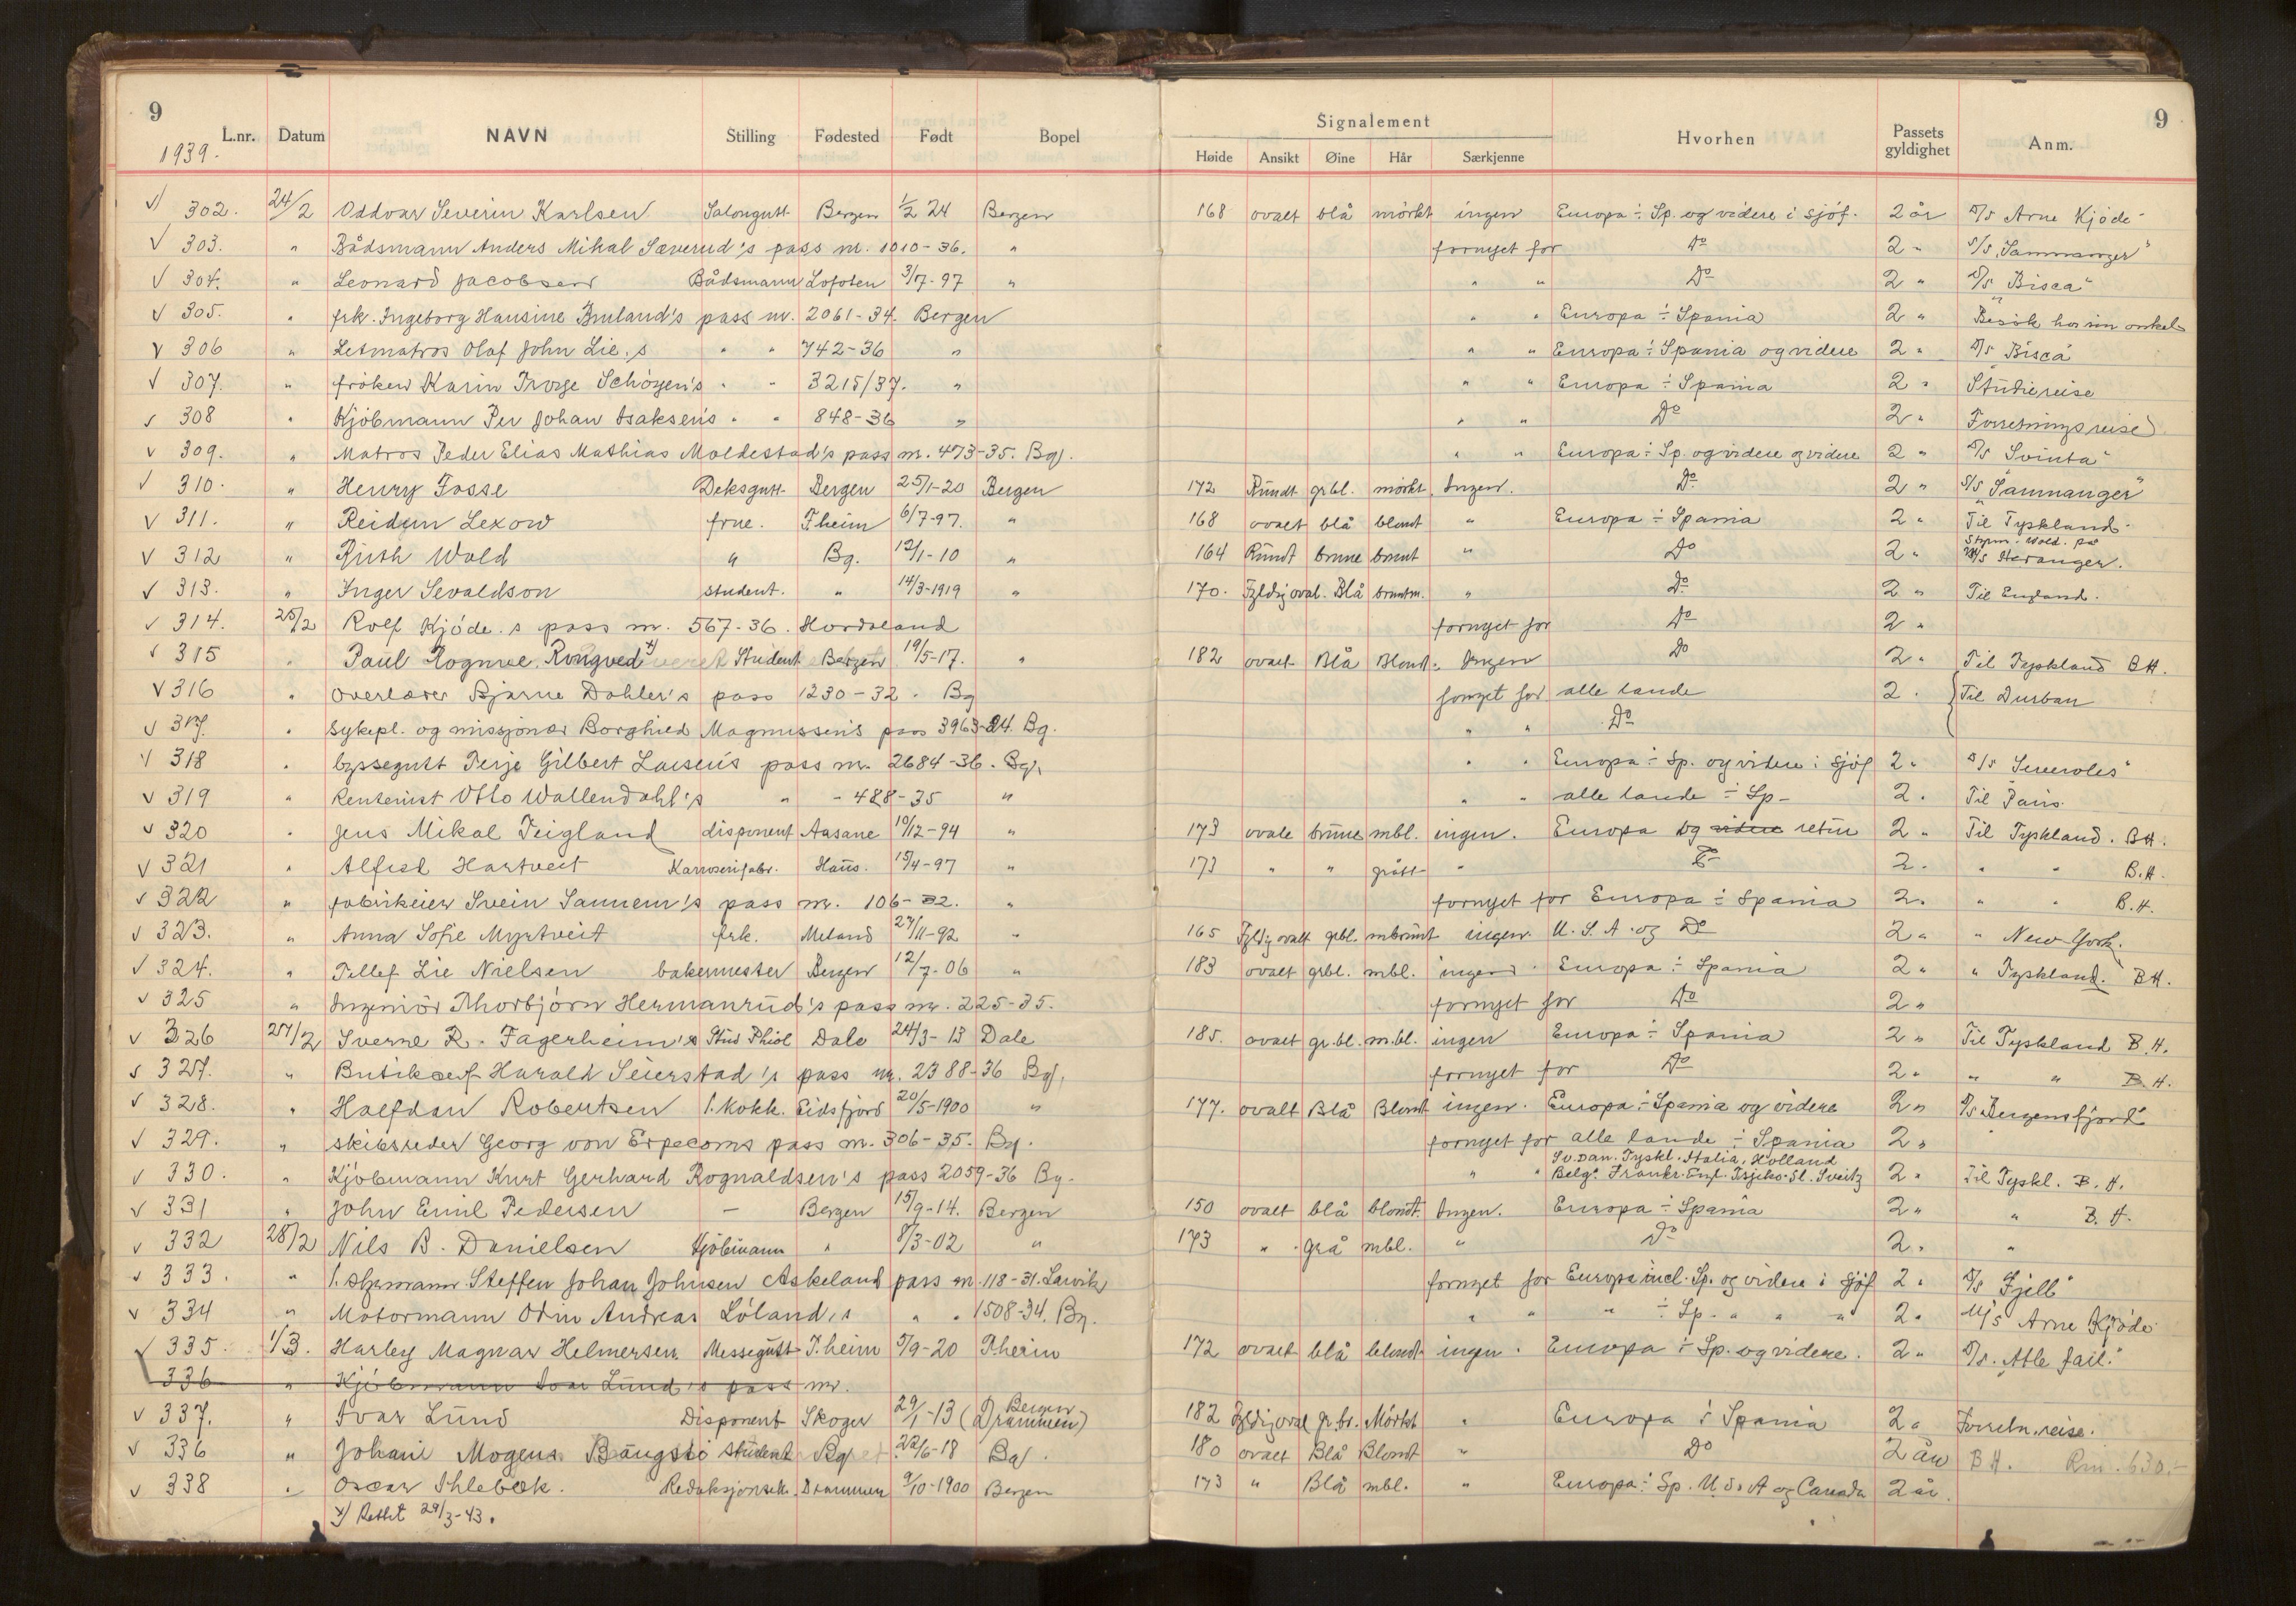 9 9
Signalement
L.nr. Datum NAVN Stilling Fødested Født Bopel Høide Ansikt Øine Hår Særkjenne Hvorhen Passets gyldighet Anm.
1939.
√ 302. 24/2 Oddvar Severin Karlsen Salongutt Bergen 1/2 24 Bergen 168 ovalt blå mörkt ingen Europa ÷ Sp. og videre i sjöf. 2 år Arne Kjöde
√ 303. " Bådsmann Anders Mikal Sæverud's pass nr. 1010-36. " fornyet for Do 2 " S/S "Samnanger"
√ 304. " Leonard Jacobsen Bådsmann Lofoten 3/7-97 " " " Do 2 " S/S Bisca"
√ 305. " frk. Ingeborg Hansine Bruland's pass nr. 2061-34. Bergen " " Europa ÷ Spania 2 " Besök hos sin onkel
√ 306 " Letmatros Olaf John Lie's " " 742-36 " " " Europa ÷ Spania og videre 2 " Bisca
√ 307. " fröken Karin Schöyen's " " 3215/37. " " " Europa ÷ Spania 2 " Studiereise
√ 308 " Kjöbmann Per Johan Isaksen's " " 848-36 " " " Do 2 " Forretningsreise
√ 309. " Matros Peder Elias Mathias Moldestad's pass nr. 473-35. Bg. " " Europa ÷ Sp. og videre og videre 2 " Svinta"
√ 310. " Henry Fosse Deksgutt Bergen 25/1-20 Bergen 172 Rundt grbl. mörkt Ingen. Do 2 " S/S "Samnanger"
√ 311. " Reidun Lexow frue. T.heim 6/7-97. " 168 ovalt blå blondt " Europa ÷ Spania 2 " Til Tyskland.
√ 312 " Ruth Wold " Bg. 12/1-10 " 164 Rundt brune brunt " Do 2 " Styrm. Wold. på M/S Heranger.
√ 313. " Inger Sevaldson student. " 14/3-1919 " 170. Fyldig oval. Blå bruntm. " Do 2 " Til England.
√ 314. 25/2 Rolf Kjöde's pass nr. 567-36. Hordaland fornyet for Do 2 "
√ 315 " Paul Rognve Rongved x) Student Bergen 19/5-17. " 182 ovalt Blå Blond. Ingen Do 2 " Til Tyskland B.H.
√ 316 " overlærer Bjarne Dahler's pass 1230-32. Bg fornyet for alle lande 2 " Til Durban
√ 317. " Sykepl. og missjonær Borghild Magnussen's pass 3963-34. Bg. " " Do
√ 318 " byssegutt Terje Gilbert Larsen's pass nr. 2684-36. Bg. " " Europa ÷ Sp. og videre i sjöf 2 "
√ 319 " Rentenist Otto Wallendahl's " " 488-35 " " " alle lande ÷ Sp- 2. Til Paris
√ 320 " Jens Mikal Teigland disponent Aasane 10/12-94 " 173 ovale brune mbl. ingen. Europa og videre retur 2 " Til Tyskland. B.H.
√ 321 " Alfred Hartveit Karroserifabr. Haus. 15/4-97 " 173 " " grått " 2. " " B.H.
√ 322 " fabrikeier Svein Sannem's pass nr. 106-32. " fornyet for Europa ÷ Spania 2. " " B.H.
√ 323. " Anna Sofie Myrtveit frk. Meland 27/11-92 " 165 Fyldig ovalt grbl. mbrunt ingen. U.S.A. og Do 2 " " New-York.
√ 324. " Tellef Lie Nielsen bakermester Bergen 12/7-06 " 183 ovalt grbl. mbl. ingen. Europa ÷ Spania 2 " " Tyskland. B.H.
√ 325 " Ingeniör Thorbjörn Hermanrud's pass nr. 225-35. fornyet for Do 2 "
√ 326 27/2 Sverre R. Fagerheim's Stud Phiol Dale 24/3-13 Dale 185. ovalt gr.bl. m.bl. ingen Europa ÷ Spania 2 " Til Tyskland B.H.
√ 327. " Harald Seierstad's pass nr. 2388-36 Bg. fornyet for Do 2. " " B.H.
√ 328. " Halfdan Robertsen 1. kokk. Eidsfjord 20/5-1900 " 177. ovalt Blå Blondt ingen. Europa ÷ Spania og videre 2 " S/S Bergensfjord"
√ 329. " skibsreder Georg von Erpecoms pass nr. 306-35. Bg. fornyet for alle lande ÷ Spania 2 "
√ 330. " Kjöbmann Kurt Gerhard Rognaldsen's pass 2059-36 Bg. " " Sv. Dan. Tyskl. Italia, Holland Belg. Frankr. Engl. Tsjeko-Sl. Sveitz 2 " Til Tyskl. B.H.
√ 331 " John Emil Pedersen — Bergen 15/9-14. Bergen 150 ovalt blå blondt. Ingen. Europa ÷ Spania 2 " " B.H.
√ 332 28/2 Nils B. Danielsen Kjöbmann " 8/3-02 " 173 " grå mbl. " Do 2. "
√ 333. " 1. styrmann Steffen Johan Johnsen Askeland pass nr. 118-31. Larvik fornyet for Europa incl. Sp. og videre i sjöf 2 " S/S Fjell"
√ 334 " Motormann Odin Andreas Löland's " " 1508-34. Bg. " " " ÷ Sp. " " " 2. M/S Arne Kjöde
√ 335. 1/3. Harley Magnar Helmersen Messegutt T.heim 5/9-20 T.heim 172 ovalt blå blondt ingen. Europa ÷ Sp. og videre. 2 " S/S. Atle Jarl."
336 " Kjöbmann Ivar Lund's pass nr.
√ 337. " Ivar Lund Disponent Skoger 29/1-13 Bergen (Drammen) 182 Fyldig oval gr.br. Mörkt " Europa ÷ Spania 2 " Forretn.reise.
√ 336 " Johan Mogens student Bg 22/6-18 Bg. 180 ovalt Blå Blondt " Do 2 år B.H. Rm. 630.-
√ 338 " Oscar Ihlebæk. Redaksjonsek. Drammen 9/10-1900 Bergen 173 " Blå mbl. " Europa ÷ Sp. U.S.A og Canada 2 år.
x) Rettet 29/3-43.